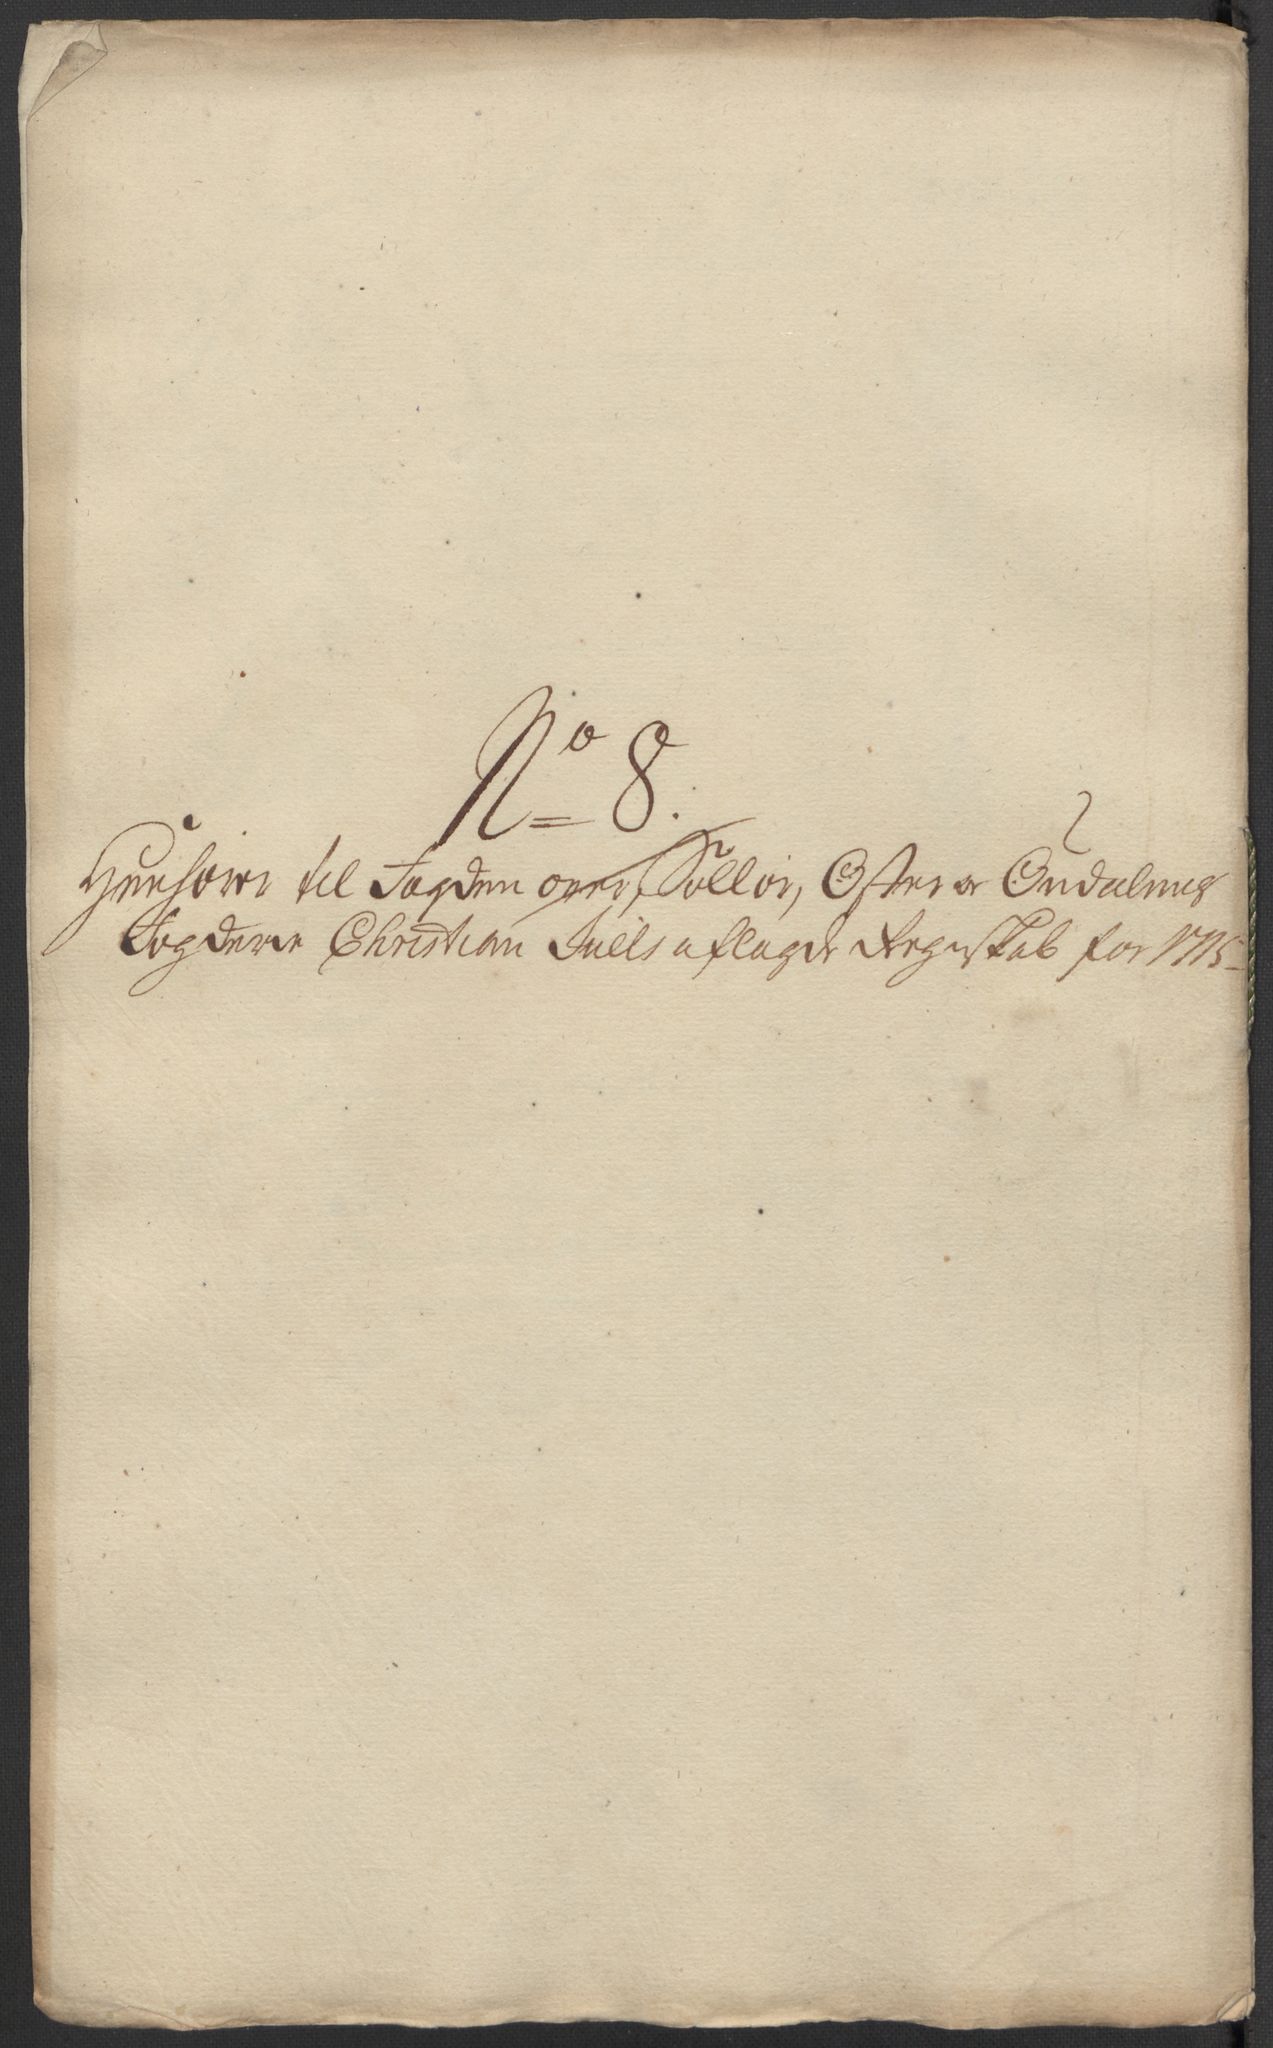 No 8.
Henhører til Fogden over Sollør, Øster og Oudalens
Fogderie Christian Juels aflagde Regnskab for 1715